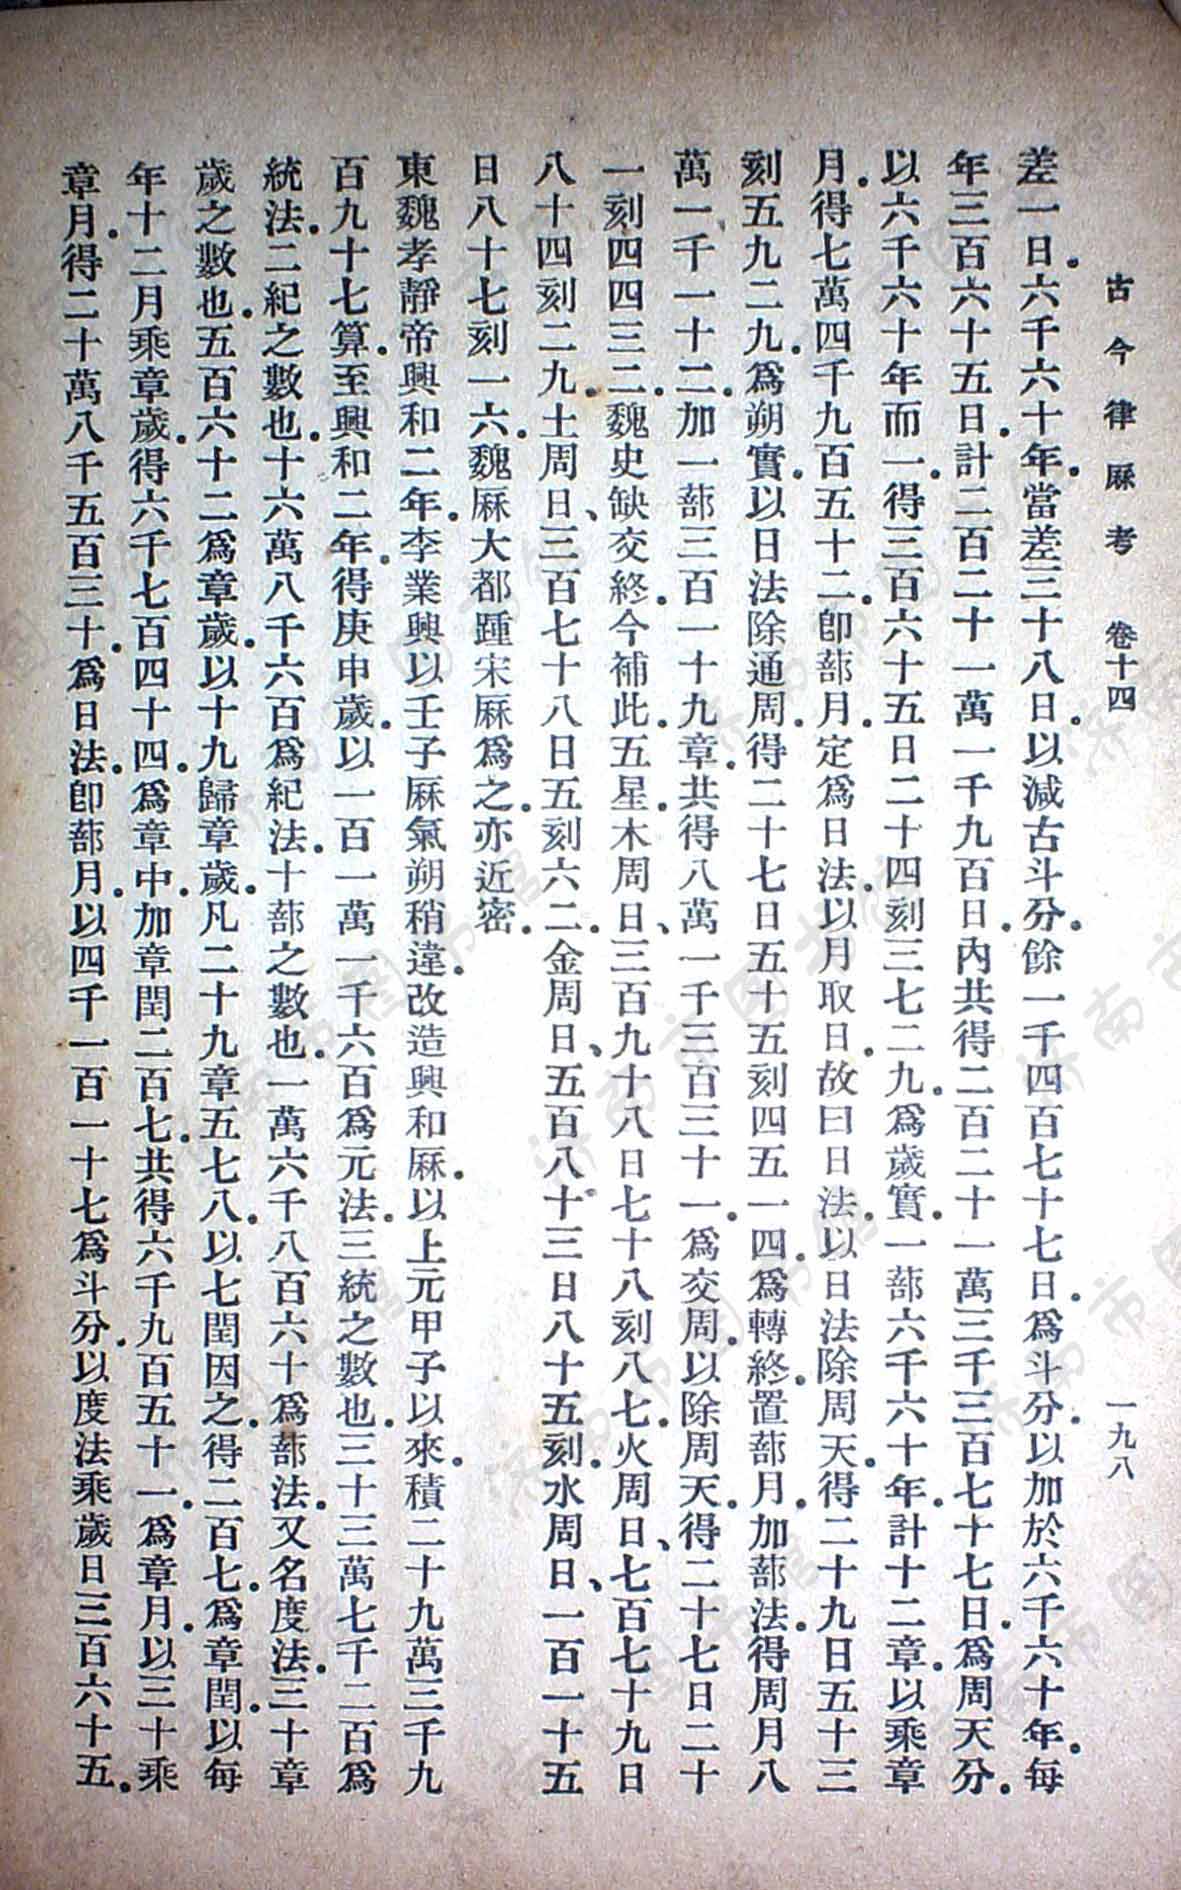 古今律厤考　卷十四　一九八
差一日。六千六十年。當差三十八日。以減古斗分。餘一千四百七十七日。爲斗分。以加於六千六十年。每
年三百六十五日。計二百二十一萬一千九百日。內共得二百二十一萬三千三百七十七日。爲周天分。
以六千六十年而一。得三百六十五日二十四刻三七二九。爲歲實。一蔀六千六十年。計十二章。以乘章
月。得七萬四千九百五十二。卽蔀月。定爲日法。以月取日。故曰日法。以日法除周天。得二十九日五十三
刻五九二九。爲朔實。以日法除通周。得二十七日五十五刻四五一四。爲轉終。置蔀月。加蔀法。得周月八
萬一千一十二。加一蔀三百一十九章。共得八萬一千三百三十一。爲交周。以除周天。得二十七日二十
一刻四四三二。魏史缺交終。今補此。五星。木周日、三百九十八日七十八刻八七。火周日、七百七十九日
八十四刻二九。土周日、三百七十八日五刻六二。金周日、五百八十三日八十五刻。水周日、一百一十五
日八十七刻一六。魏厤大都踵宋厤爲之。亦近密。
東魏孝靜帝興和二年。李業興以壬子厤氣朔稍違。改造興和厤。以上元甲子以來。積二十九萬三千九
百九十七算。至興和二年。得庚申歲。以一百一萬一千六百爲元法。三統之數也。三十三萬七千二百爲
統法。二紀之數也。十六萬八千六百爲紀法。十蔀之數也。一萬六千八百六十爲蔀法。又名度法。三十章
歲之數也。五百六十二爲章歲。以十九歸章歲。凡二十九章五七八。以七閏因之。得二百七。爲章閏。以每
年十二月乘章歲。得六千七百四十四。爲章中。加章閏二百七。共得六千九百五十一。爲章月。以三十乘
章月。得二十萬八千五百三十。爲日法。卽蔀月。以四千一百一十七爲斗分。以度法乘歲日三百六十五。